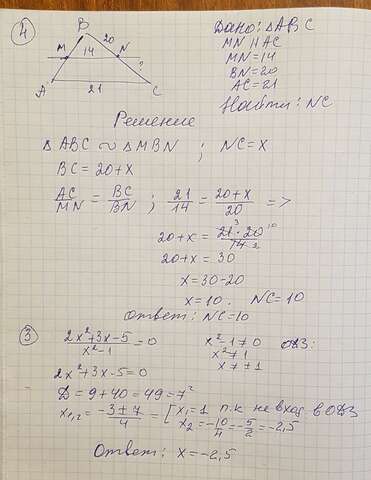 4
B
20
M 14 N
?
A 21 C
Дано: △ABC
MN || AC
MN = 14
BN = 20
AC = 21
Найти: NC
Решение
△ABC ∼ △MBN ; NC = x
BC = 20 + x
AC/MN = BC/BN ; 21/14 = 20+x/20 =>
20 + x = 21 3 · 20 10 / 14 2
20 + x = 30
x = 30 - 20
x = 10. NC = 10
Ответ: NC = 10
3
2x²+3x-5/x²-1 = 0 x²-1 ≠ 0 ОДЗ:
x² ≠ 1
x ≠ ±1
2x²+3x-5=0
D = 9 + 40 = 49 = 7²
x1,2 = -3±7/4 = [ x1 = 1 п.к не вход в ОДЗ
x2 = -10/4 = -5/2 = -2,5
Ответ: x = -2,5